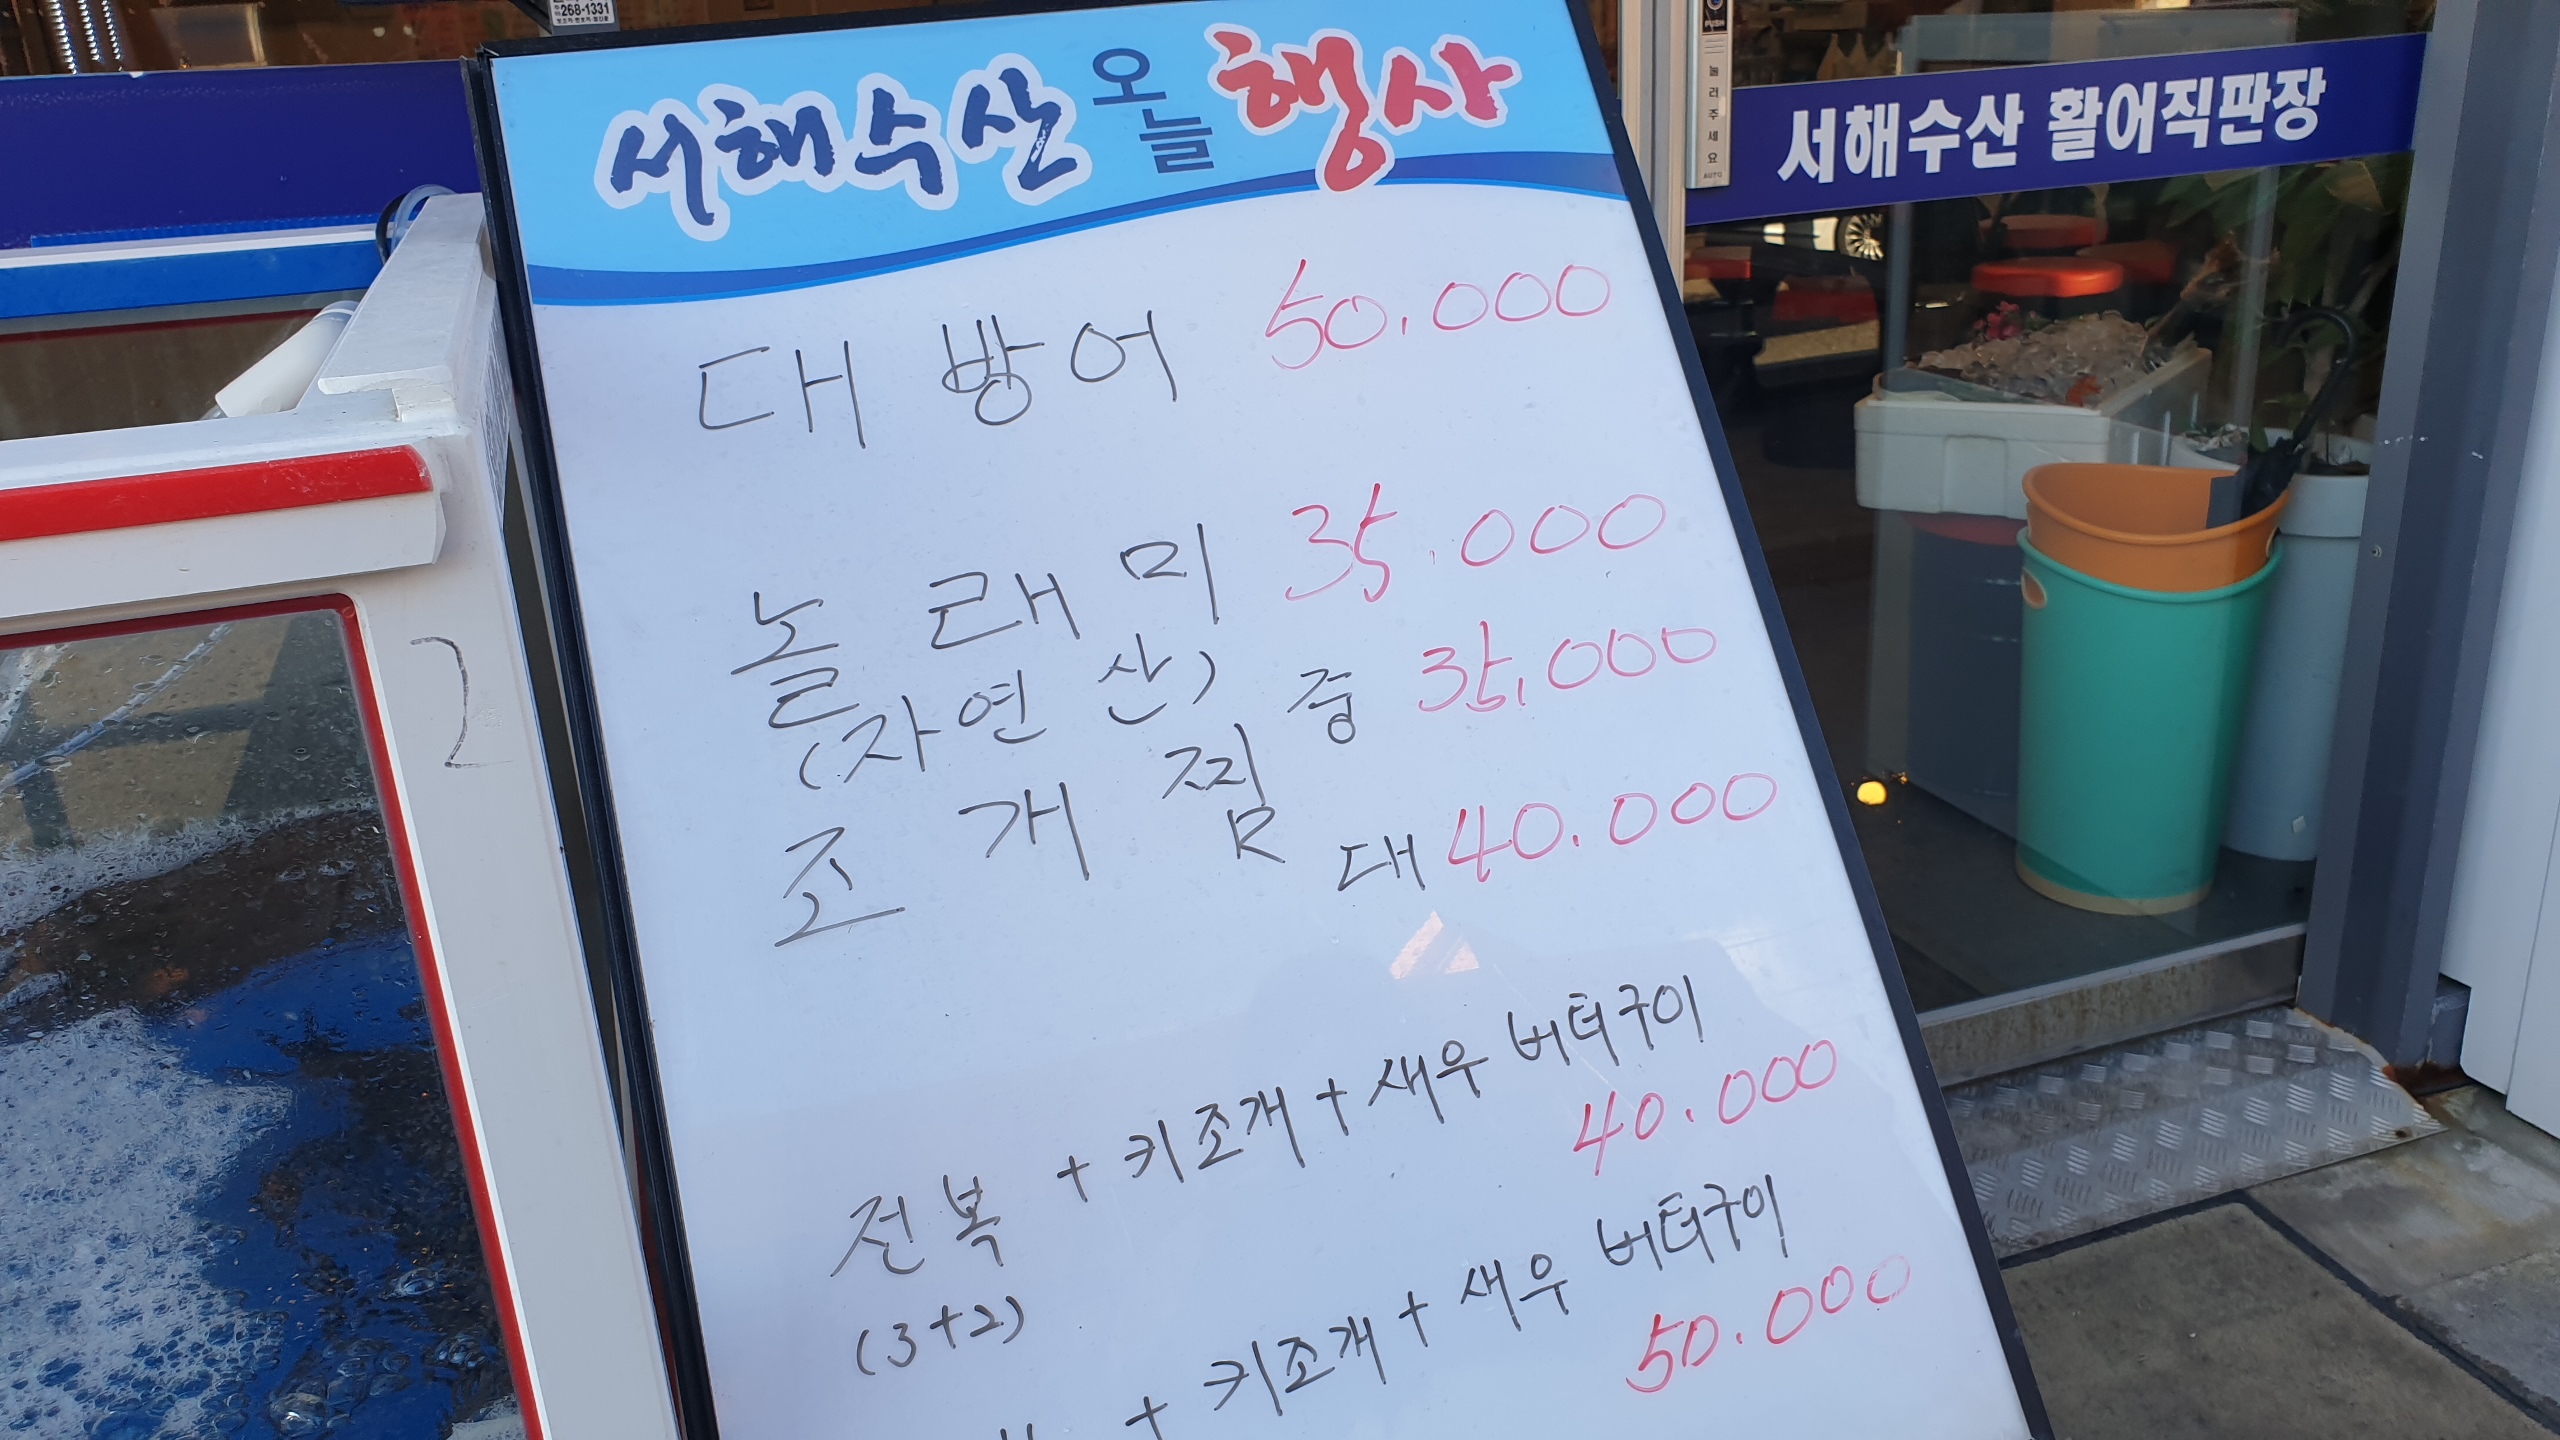 268-1331
서해수산 오늘 행사
대방어 50.000
놀래미 35.000
(자연산)
조개찜 중 35,000
대 40.000
전복 + 키조개 + 새우 버터구이
40.000
(3+2)
+ 키조개 + 새우 버터구이
50.000
2
PUSH
눌러주세요
AUTO
서해수산 활어직판장